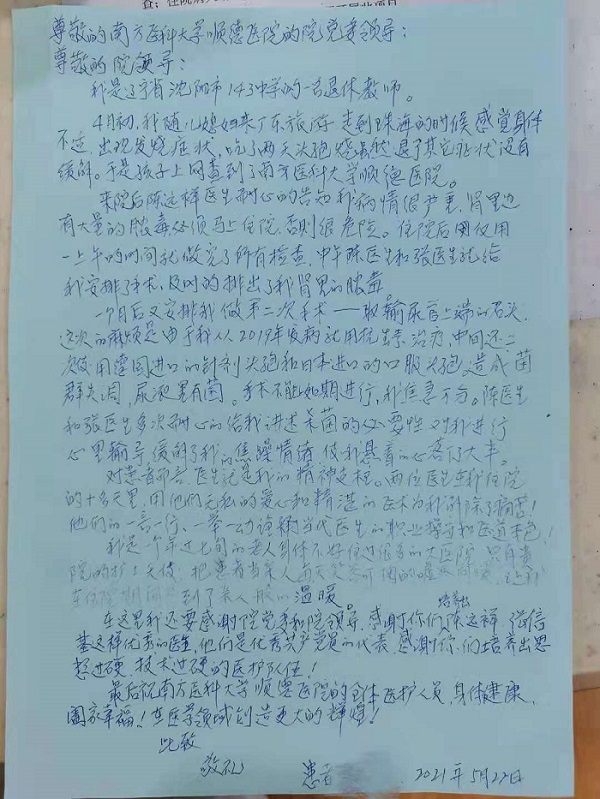 尊敬的南方医科大学顺德医院的院党委领导：
尊敬的院领导：
我是辽宁省沈阳市143中学的一名退休教师。
4月初，我随儿媳妇来广东旅游，走到珠海的时候感觉身体
不适，出现发烧症状，吃了两天头孢烧虽然退了其它症状没有
缓解。于是孩子上网查到了南方医科大学顺德医院。
来院后陈远祥医生耐心的告知我病情很严重，肾里边
有大量的脓毒必须马上住院，否则很危险。住院后用仅用
一上午的时间就做完了所有检查，中午陈医生和张医生就给
我安排手术，及时的排出了我肾里的脓毒
一个月后又安排我做第二次手术——取输尿管上端的石头，
这次的麻烦是由于我从2019年发病就用抗生素治疗，中间还二
次使用德国进口的针剂头孢和日本进口的口服头孢造成菌
群失调，尿液里有菌。手术不能如期进行，我焦急万分。陈医生
和张医生多次耐心的给我讲述杀菌的必要性，对我进行
心里输导缓解了我的焦躁情绪，使我悬着的心落了大半。
对患者而言，医生就是我的精神支柱。两位医生在我住院
的十多天里，用他们无私的爱心和精湛的医术为我解除了痛苦！
他们的一言一行、一举一动诠释当代医生的职业操守和医道本色！
我是一个年过七旬的老人身体不好住过很多的大医院，只有贵
院的护士天使，把患者当亲人
到了亲人般的温暖。
在这里我还要感谢院党委和院领导，感谢你们培养出陈远祥、张信
基这样优秀的医生，他们是优秀共产党员的代表，感谢你们培养出思
想过硬，技术过硬的医护队伍！
最后祝南方医科大学顺德医院的全体医护人员，身体健康，
阖家幸福！在医学领域创造更大的辉煌！
此致
敬礼
患者
2021年5月27日